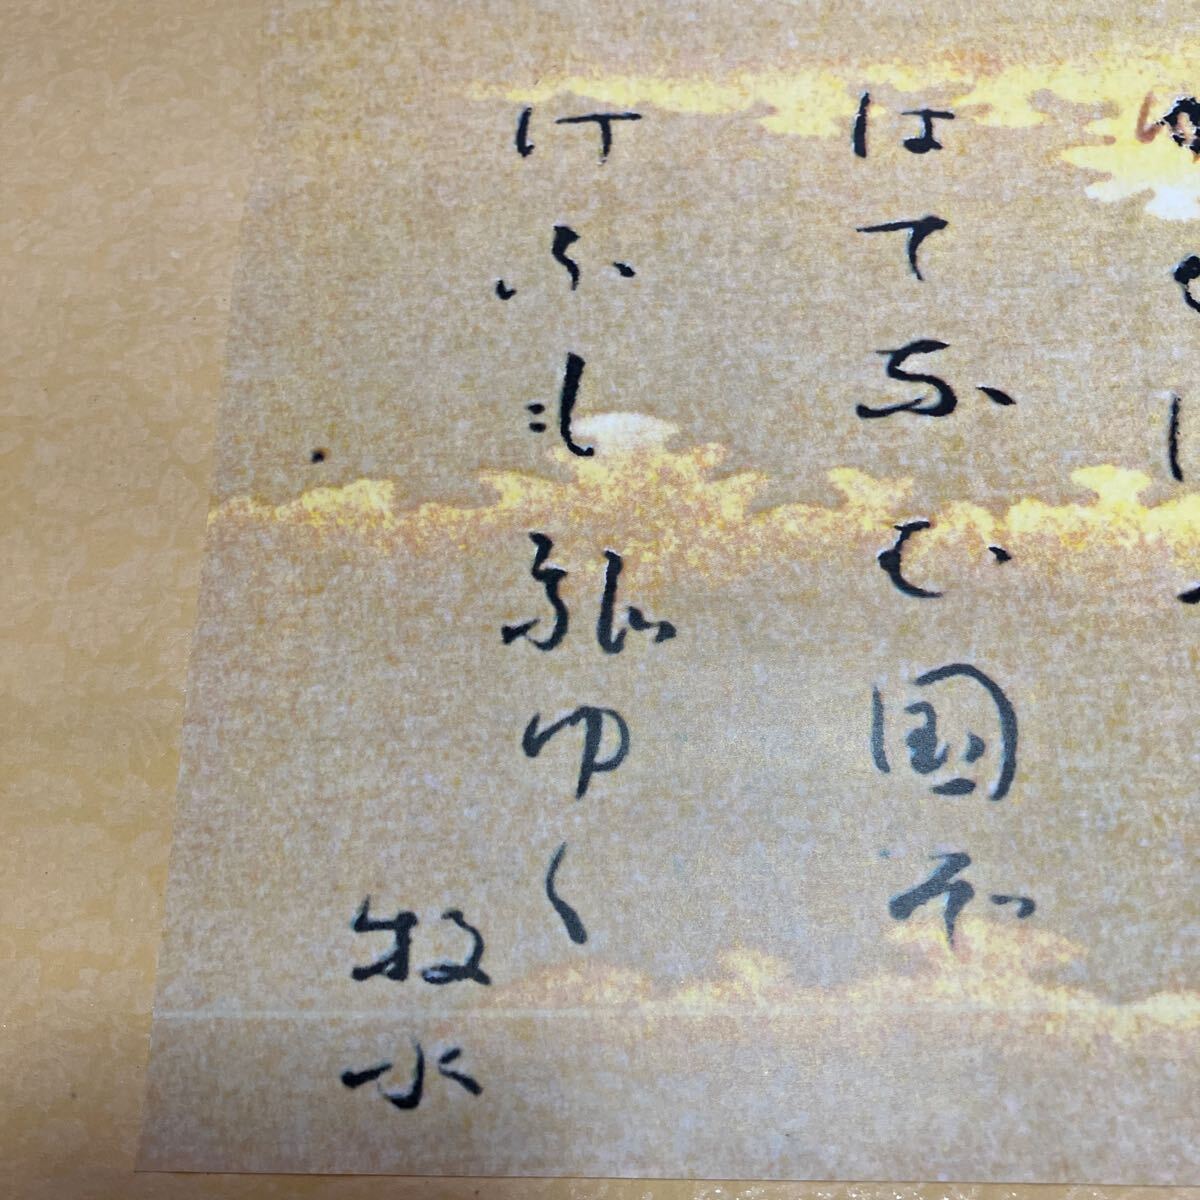 はてなむ国そ
けふも旅ゆく
牧水